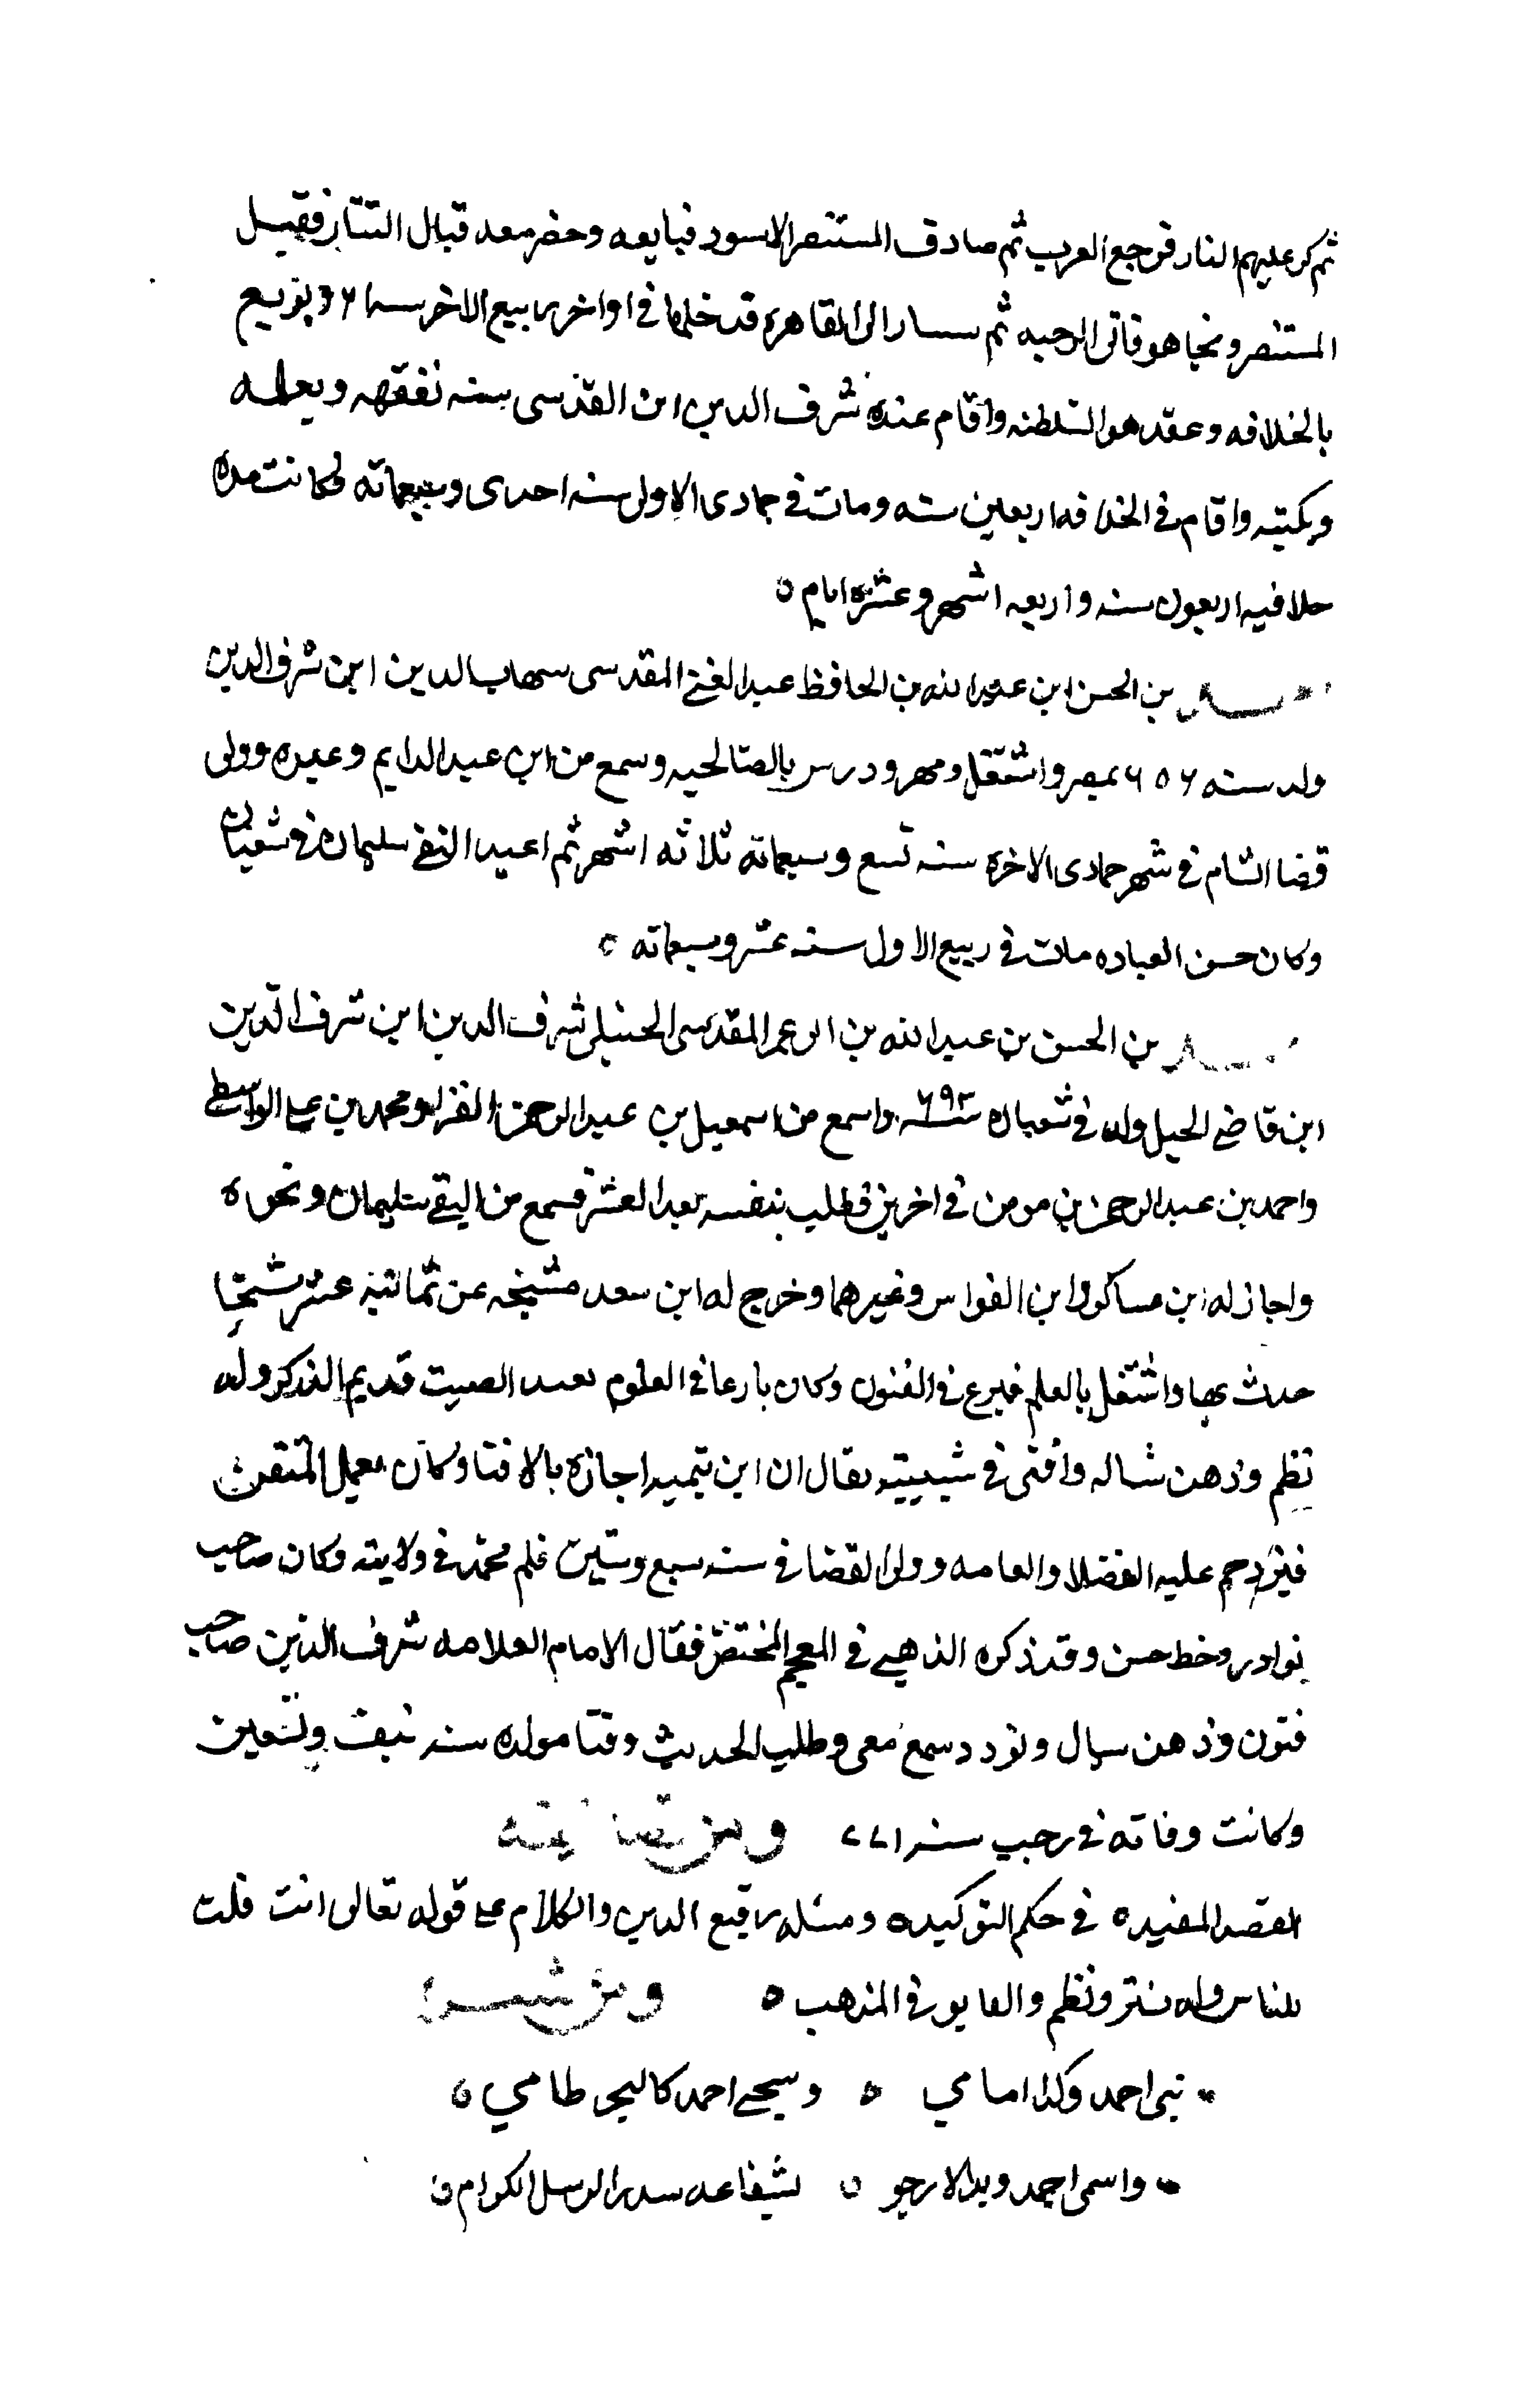 ثم كر عليهم التتار فرجع العرب ثم صادف المستنصر الاسود فبايعه وحضر معه قتال التتار فقتل
المستنصر ونجا هو فاتى الرحبه ثم سار الى القاهرة فدخلها في اواخر ربيع الاخر سنة فبويع
بالخلافه وعقد هو السلطنه واقام عنده شرف الدين ابن المقدسى سنه تفقهه ويعلمه
ويكتبه واقام في الخلافه اربعين سنه ومات في جمادى الاولى سنه احدى وسبعماته فكانت مدة
خلافته اربعون سنه واربعه اشهر وعشرة ايام
بن الحسن ابن عبد الله بن الحافظ عبد الغنى المقدسى شهاب الدين ابن شرف الدين
ولد سنه ٦٥٦ بمصر واشتغل ومهر ودرس بالصالحيه وسمع من ابن عبد الدايم وغيره وولى
قضا الشام في شهر جمادى الاخرة سنه تسع وسبعماته ثلاثه اشهر ثم اعيد التقى سليمان في شعبان
وكان حسن العباده مات في ربيع الاول سنه عشر وسبعماته
بن الحسن بن عبد الله بن ابى عمر المقدسى الحنبلى شرف الدين ابن شرف الدين
ابن قاضى الجبل ولد في شعبان سنة ٦٩٣ واسمع من اسمعيل بن عبد الرحمن الفرا ومحمد بن على الواسطى
واحمد بن عبد الرحمن بن مومن في اخرين وطلب بنفسه بعد العشر فسمع من التقى سليمان ونحوه
واجاز له ابن عساكر وابن القواس وغيرهما وخرج له ابن سعد مشيخه عن ثمانية عشر شيخا
حدث بها واشتغل بالعلم فبرع في الفنون وكان بارعا في العلوم بعيد الصيت قديم الذكر وله
نظم وذهن سال وافتى في شبيبته يقال ان ابن تيميه اجازه بالافتا وكان يعمل
فيزدحم عليه الفضلا والعامه وولى القضا في سنه سبع وستين فلم يحمد في ولايته وكان صاحب
نوادر وخط حسن وقد ذكره الذهبى في المعجم المختص فقال الامام العلامه شرف الدين صاحب
فنون وذهن سيال وتودد سمع معى وطلب الحديث وقتا مولده سنه نيف وتسعين
وكانت وفاته في رجب سنه ٧٧١ ومن تصانيفه
القصد المفيد في حكم التوكيد ومسئله رفع اليدين والكلام على قوله تعالى انت قلت
للناس وله نثر ونظم والفايق في المذهب ومن شعره
نبى احمد وكذا امامى وشيخى احمد كالبحر طامى
واسمى احمد وبذلك ارجو شفاعه سيد الرسل الكرام